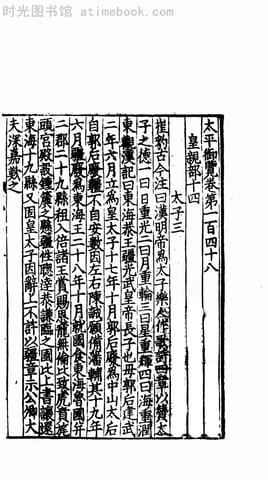 时光图书馆 — atimebook.com
太平御覽卷第一百四十八
皇親部十四
太子三
崔豹古今注曰漢明帝爲太子樂人作歌詩四章以贊太
子之德一曰日重光二曰月重輪三曰星重輝四曰海重潤
東觀漢記曰東海恭王彊光武皇帝長子也母郭后建武
二年六月立爲皇太子十七年十月郭后廢爲中山太后
自郭后廢彊不自安數因左右陳誠願備藩輔其十九年
六月彊廢爲東海王二十八年十月就國食東海魯國
二郡二十九縣租入倍諸王賞賜恩寵無倫比致虎賁旄
頭宮殿設鍾虡之懸彊性聰達恭謙臨之國比上書讓還
東海十九縣又因皇太子固辭上不許以彊章示公卿大
夫深嘉歎之